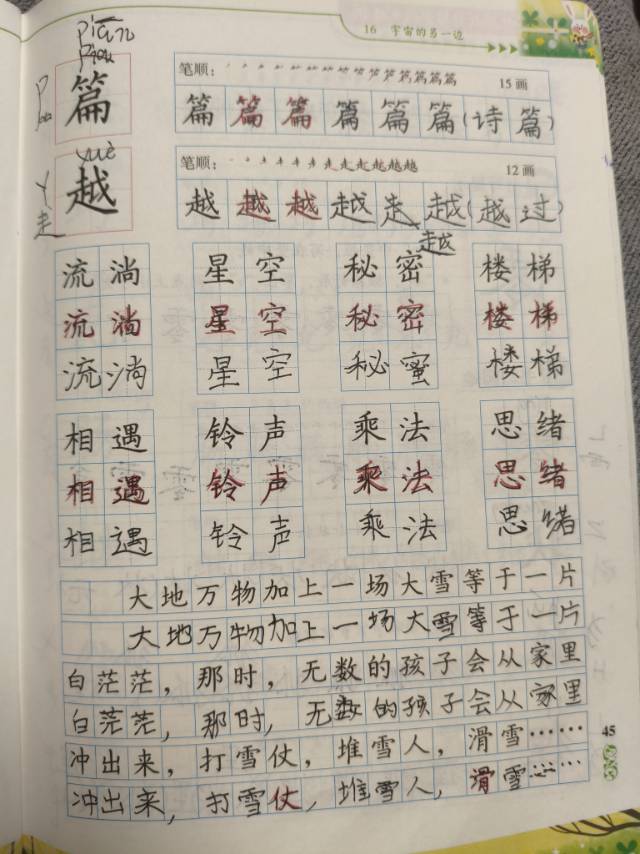 16 宇宙的另一边
piān
篇
笔顺: 15画
篇篇篇篇篇篇(诗篇)
yuè
越
走
笔顺: 12画
越越越越走越(越过)
越
流淌 星空 秘密 楼梯
流淌 星空 秘密 楼梯
流淌 星空 秘蜜 楼梯
相遇 铃声 乘法 思绪
相遇 铃声 乘法 思绪
相遇 铃声 乘法 思绪
大地万物加上一场大雪等于一片
大地万物加上一场大雪等于一片
白茫茫,那时,无数的孩子会从家里
白茫茫,那时,无数的孩子会从家里
冲出来,打雪仗,堆雪人,滑雪……
冲出来,打雪仗,堆雪人,滑雪……
45